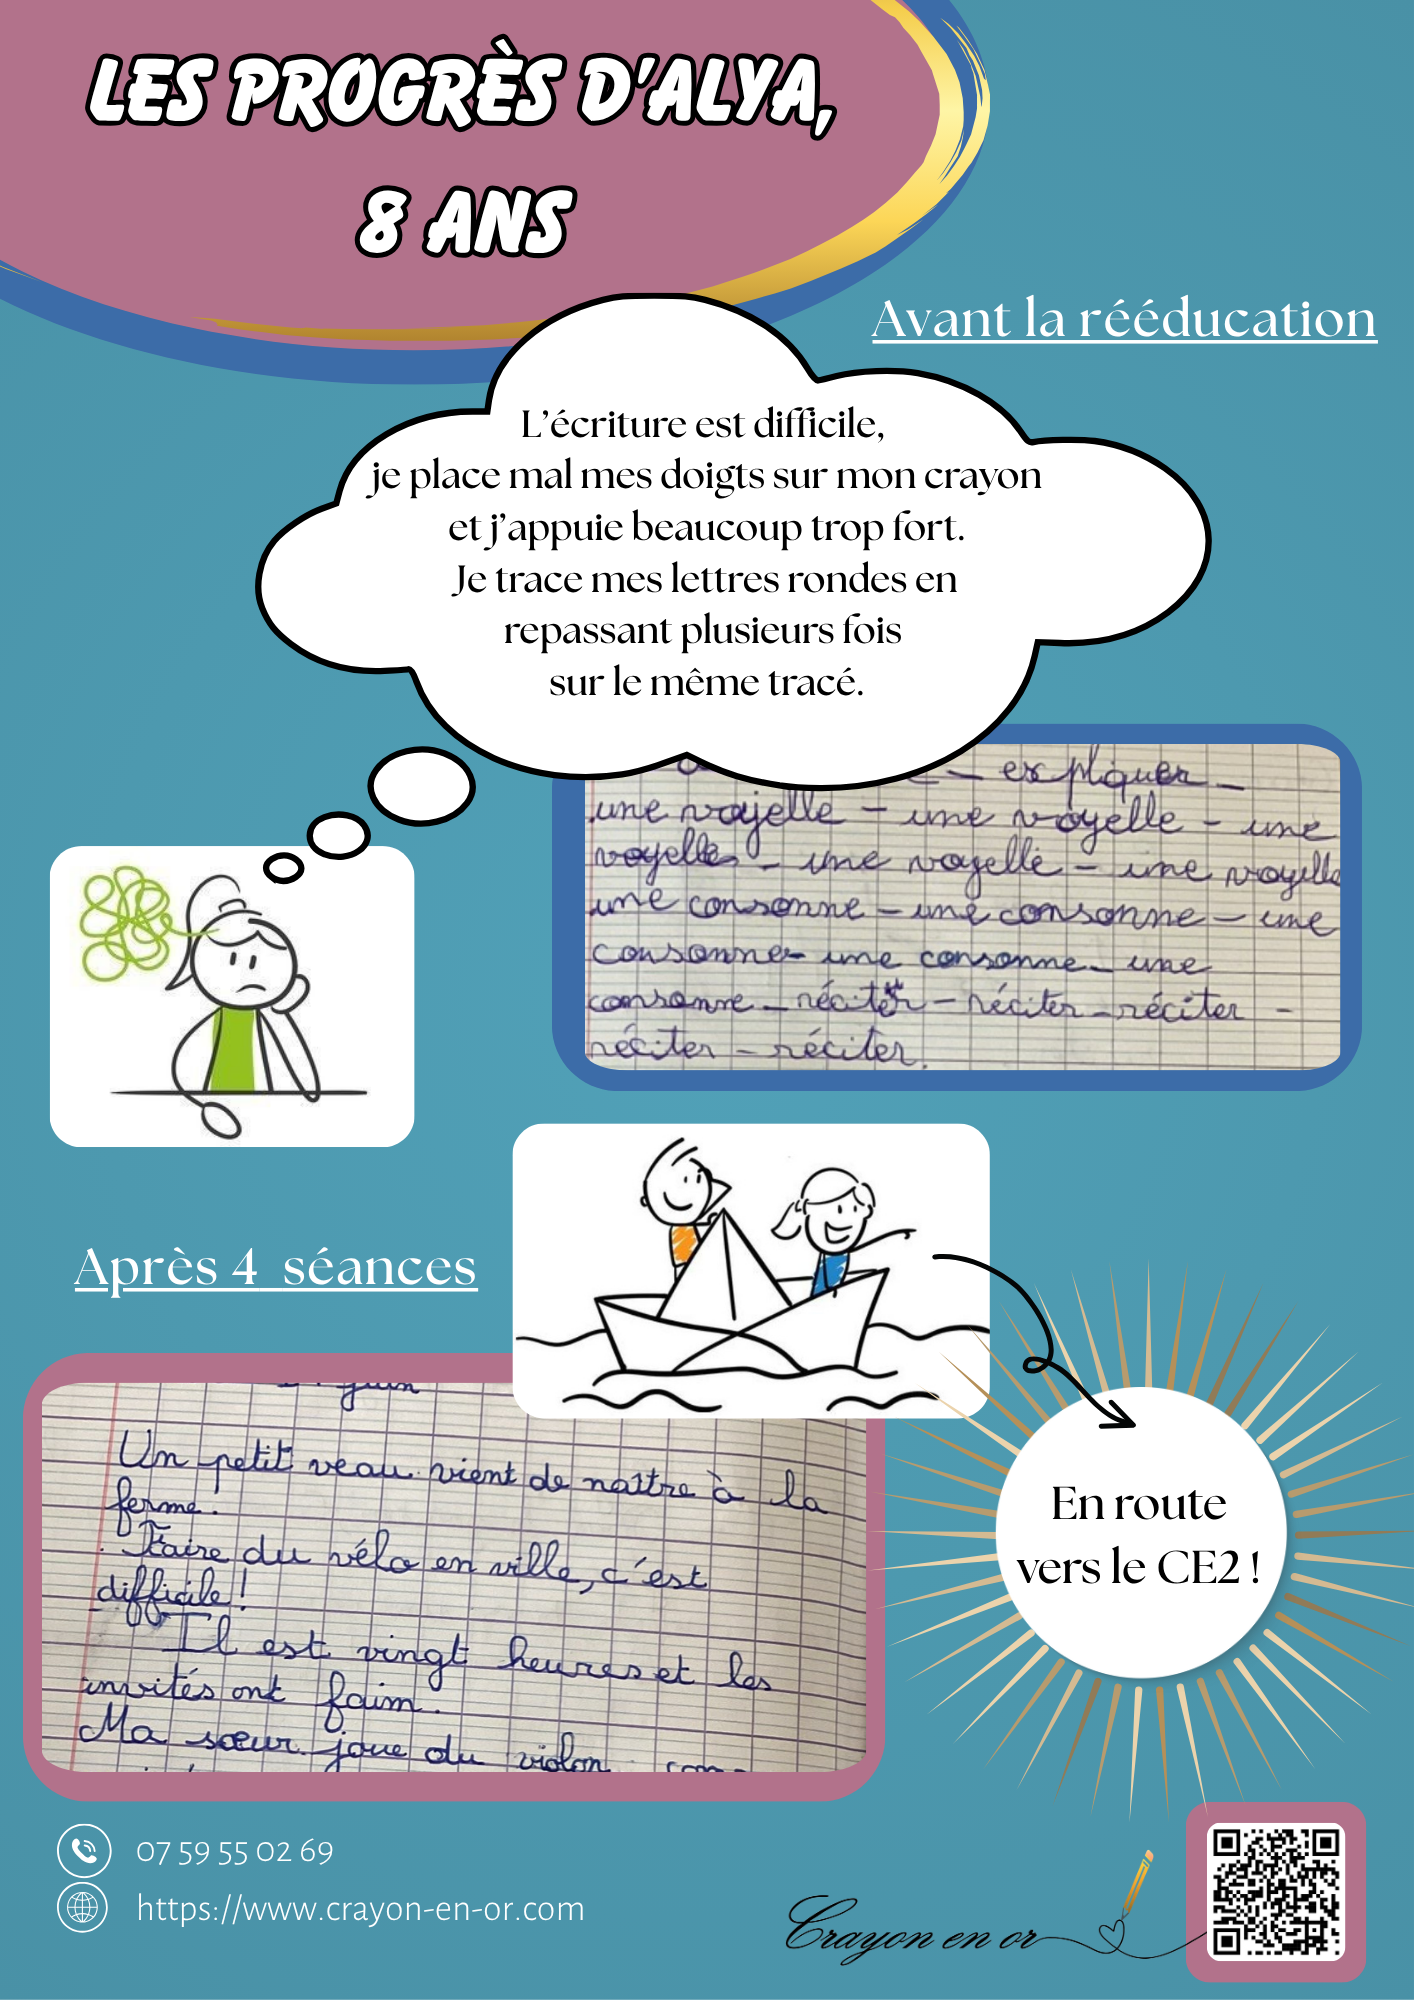 LES PROGRÈS D'ALYA,
8 ANS
Avant la rééducation
L'écriture est difficile,
je place mal mes doigts sur mon crayon
et j'appuie beaucoup trop fort.
Je trace mes lettres rondes en
repassant plusieurs fois
sur le même tracé.
– expliquer –
une voyelle – une voyelle – une
voyelle – une voyelle – une voyelle
une consonne – une consonne – une
consonne – une consonne – une
consonne – réciter – réciter – réciter –
réciter – réciter.
Après 4 séances
juin
Un petit veau vient de naître à la
ferme.
Faire du vélo en ville, c'est
difficile !
Il est vingt heures et les
invités ont faim.
Ma sœur joue du violon
En route
vers le CE2 !
07 59 55 02 69
https://www.crayon-en-or.com
Crayon en or